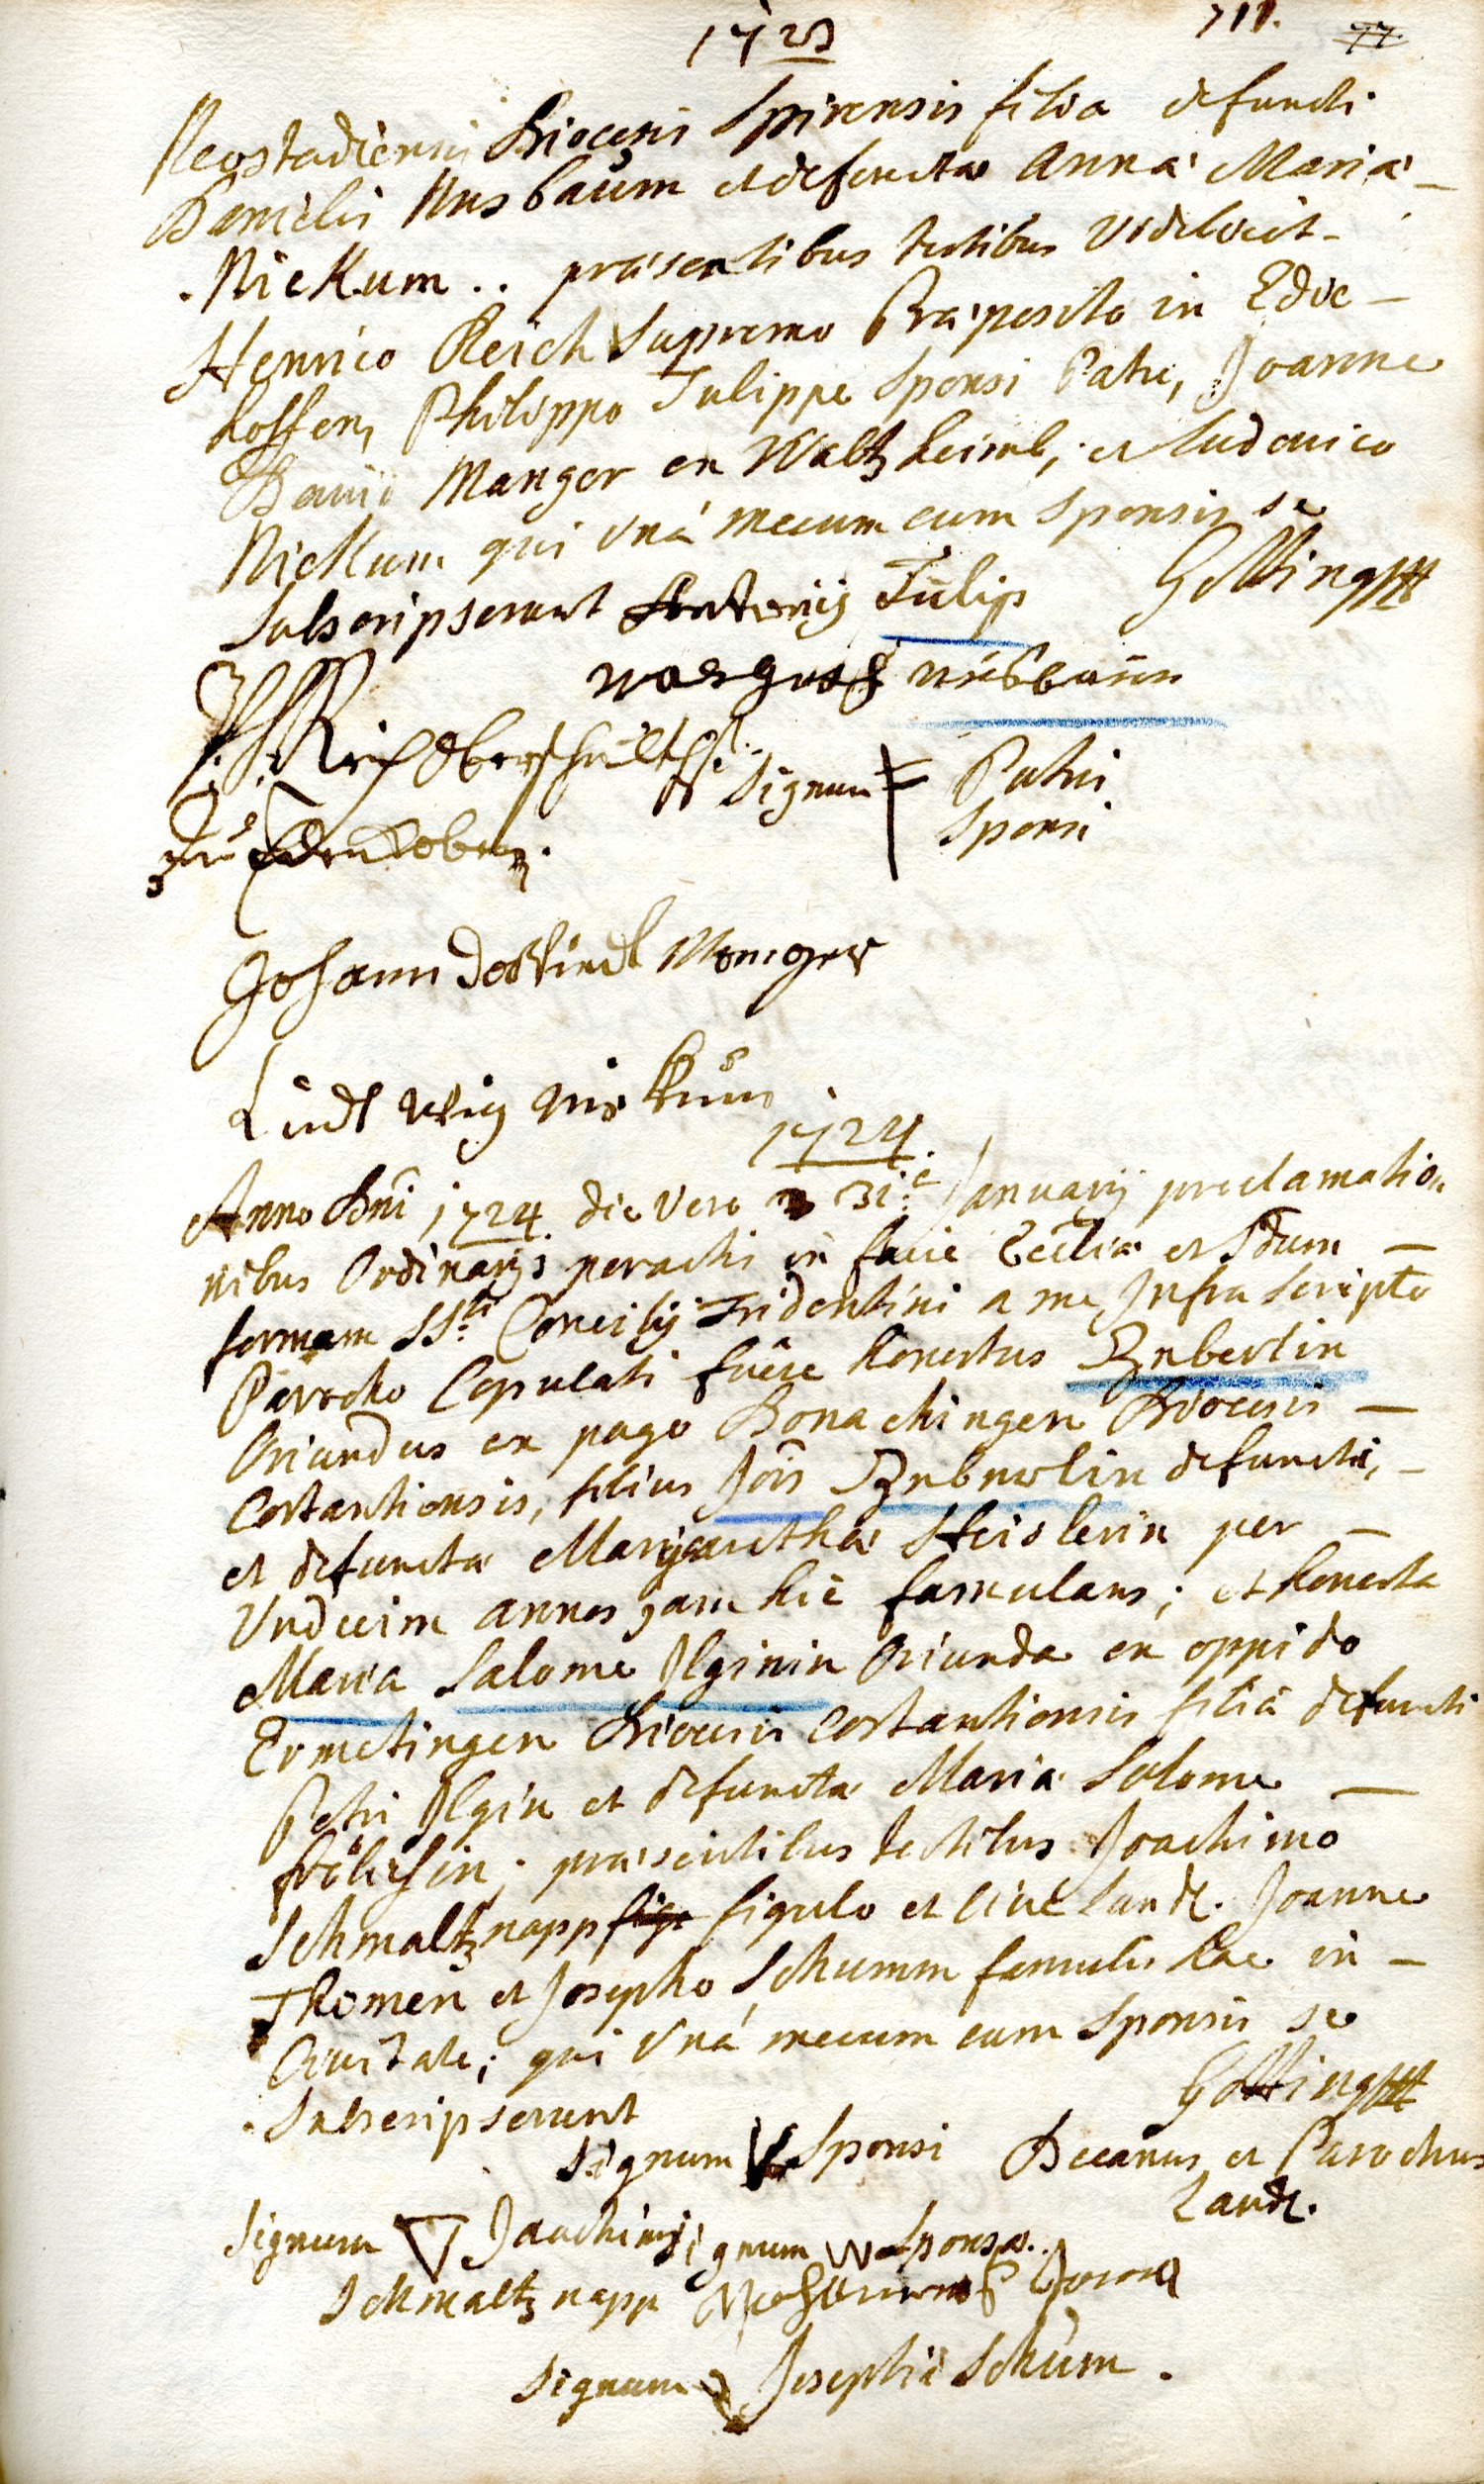 1723
711. 77
Neostadiensi Diocesis Spirensis filia defuncti
Danielis Nusbaum et defuncta Anna Maria
Nickum .. præsentibus testibus videlicet
Henrico Reich Supremo Præposito in Edic-
koffen, Philippo Tulippe Sponsi Patre, Joanne
Manger ex Waltzheimb, et Ludovico
Nickum qui unà mecum cum Sponsis se
Subscripserunt Tulip Götting
nusbaum
Reich Oberschultheß
Signum Patris
Sponsi
zu Edenkoben.
Johann Manger
Ludt wig nickum
1724.
Anno Dni 1724. die vero 31.e Januarij proclamatio
nibus Ordinarijs peractis in facie Ecclia et Sdum
formam SS.ti Concilij Tridentini a me Infra Scripto
Parocho Copulati fuere honestus Zuberlin
Oriundus ex pago Donachingen Diocesis
Costantiensis, filius Jois Zuberlin defuncti,
et defuncta Margaretha Heislerin per
Undecim annos jam hic famulans; et honesta
Maria Salome Ilginin Oriunda ex oppido
Ermetingen Diocesis Costantiensis filia defuncti
Petri Ilgin et defuncta Maria Salome
præsentibus testibus Joachimo
Schmaltznapp figulo et cive Land. Joanne
Thomen et Josepho Schumm famulis hac in
Civitate; qui unà mecum cum Sponsis se
Subscripserunt Götting
Signum Sponsi Decanus et Parochus
Land.
Signum Joachimi Signum Sponsa.
Schmaltz napp
Signum Josephi Schum.